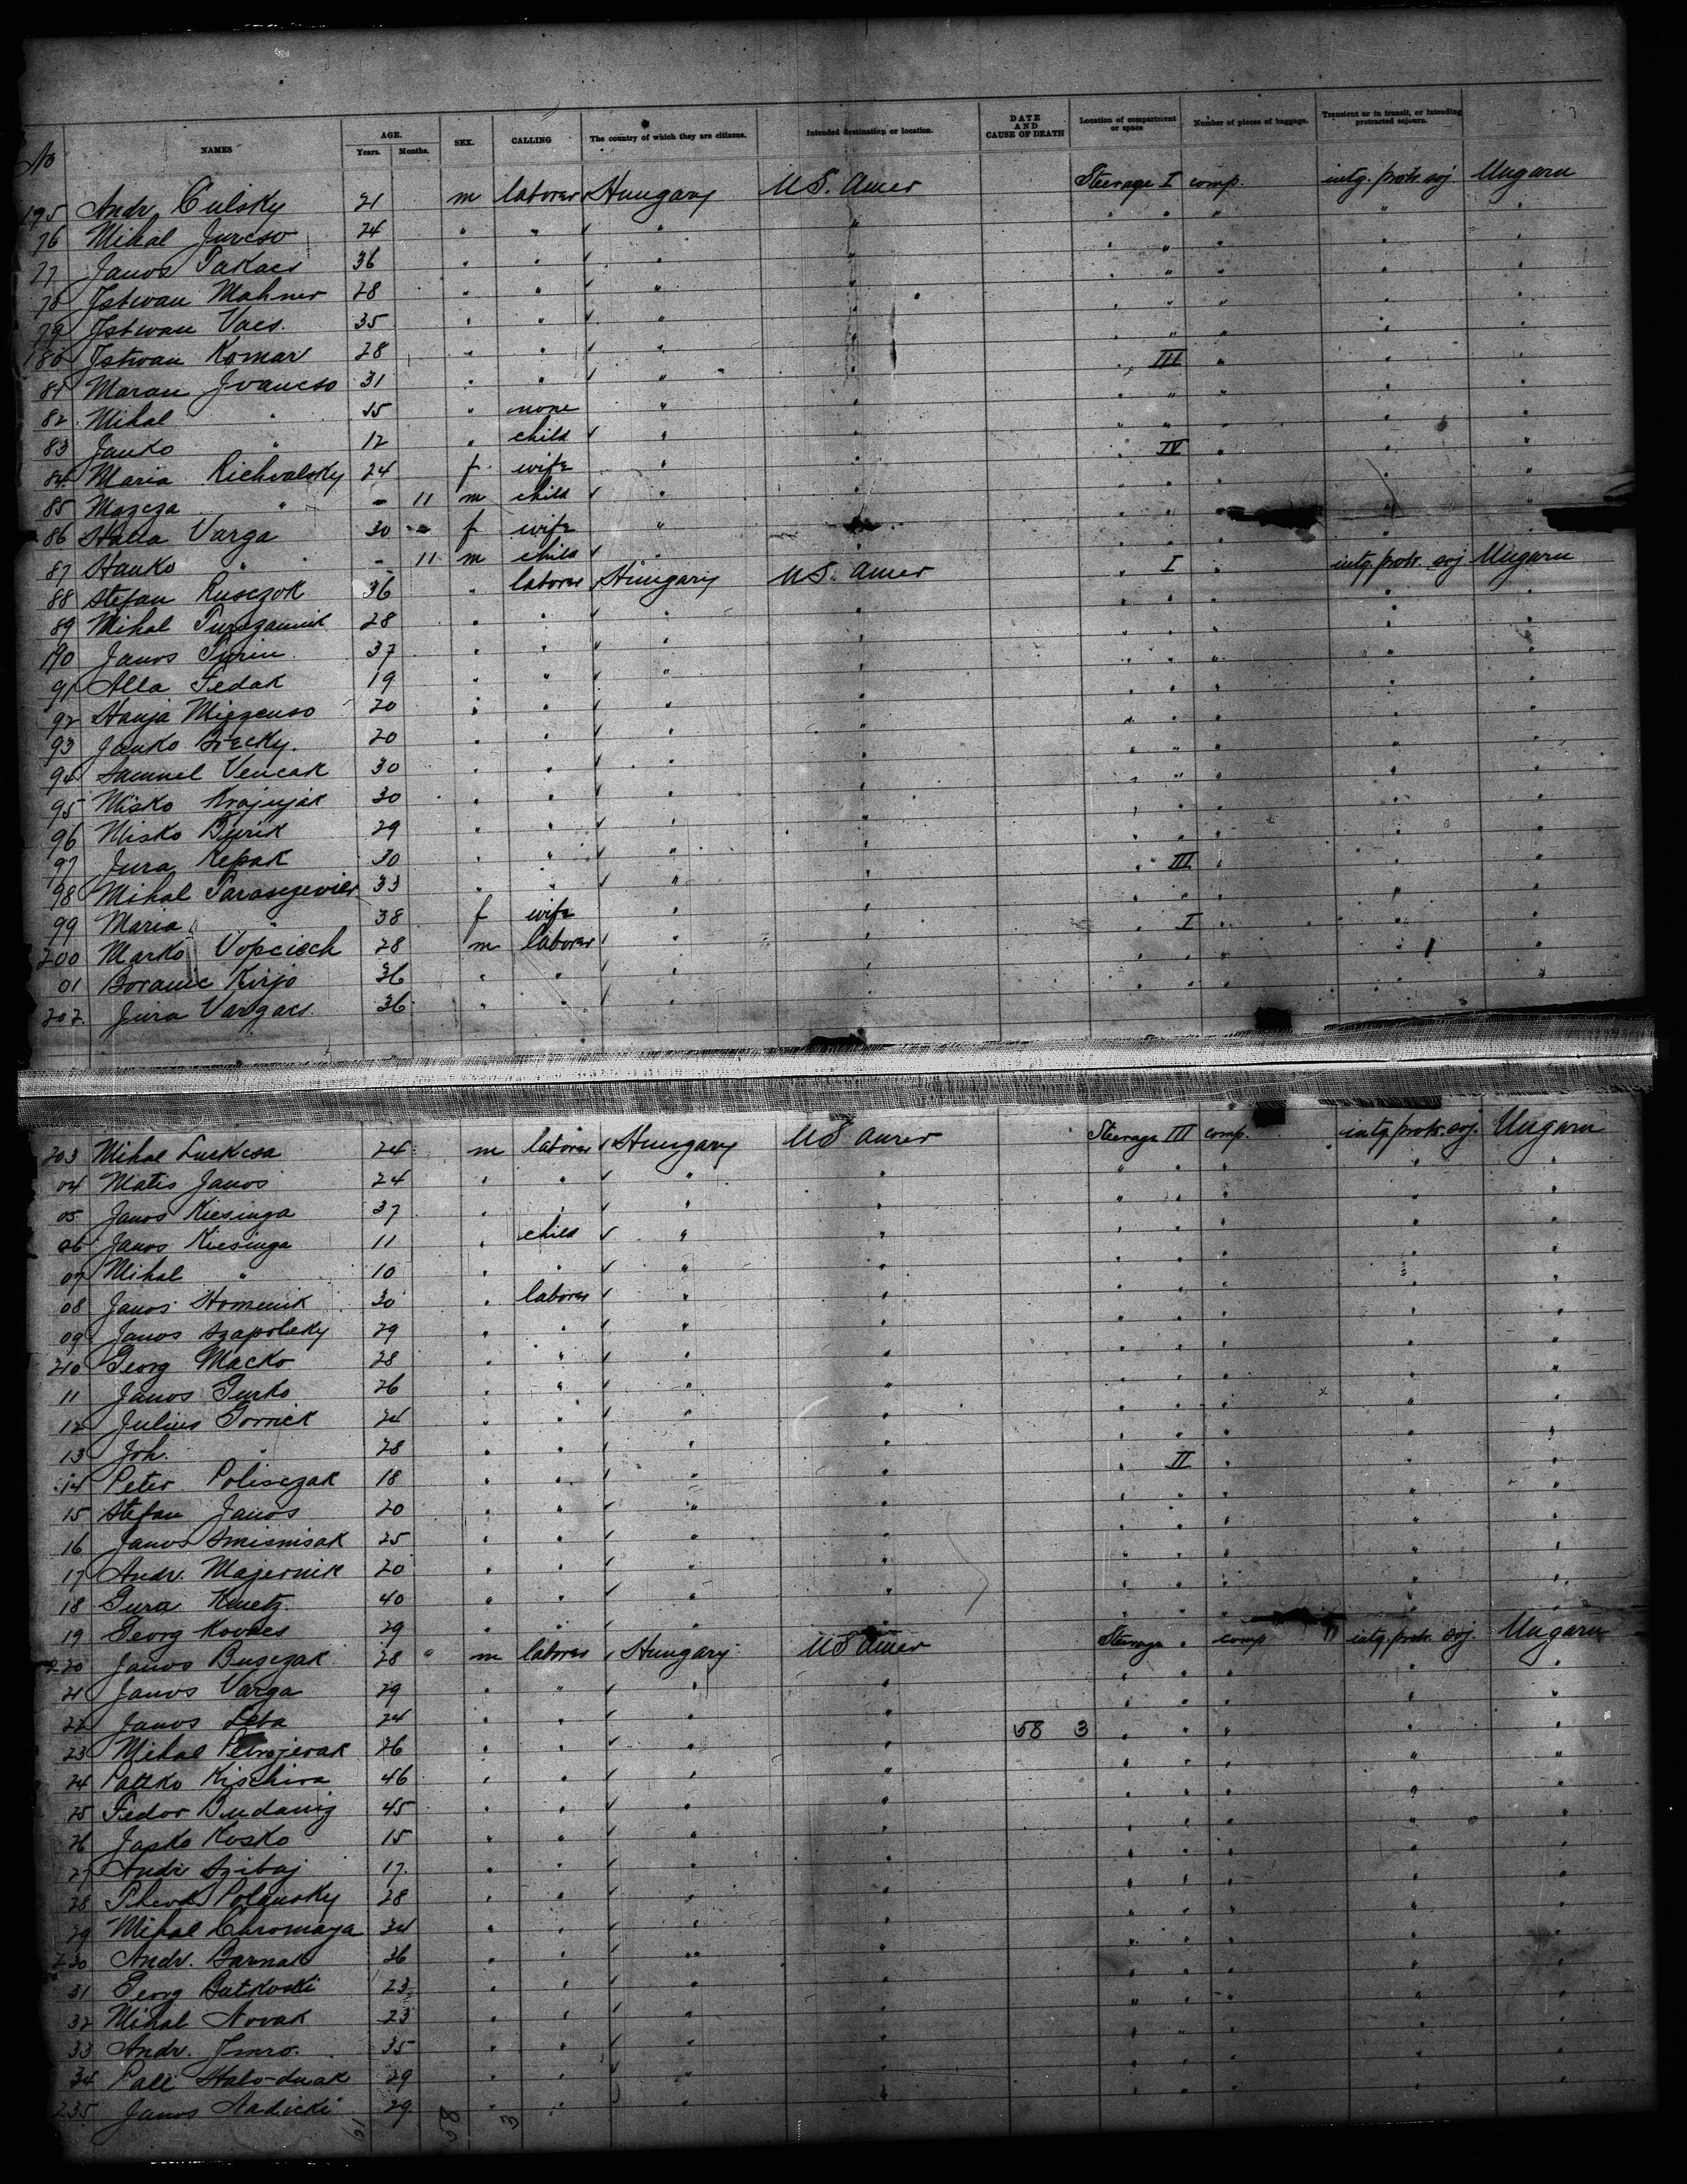 No NAMES AGE. Years. Months. SEX. CALLING The country of which they are citizens. Intended destination or location. DATE AND CAUSE OF DEATH Location of compartment or space Number of pieces of baggage. Transient or in transit, or intending protracted sojourn.
195 Andr. Culsky 21 m laborer Hungary U.S. Amer Steerage I comp. intg. protr. soj Ungarn
76 Mihal Jurcso 24 " " " "
77 Janos Takacs 36 " " " "
78 Istwan Mahner 28 " " " "
79 Istwan Vacs. 35 " " " "
180 Istwan Komar 28 " " " "
81 Maran Ivancso 31 " " " " III "
82 Mihal " 15 " none " "
83 Janko " 12 " child " "
84 Maria Richvalsky 24 f wife " " IV "
85 " - 11 m child " "
86 Varga 30 - f wife " "
87 Hanko " - 11 m child " "
88 Stefan Rusczok 36 " laborer Hungary U.S. Amer I " intg. protr. soj Ungarn
89 Mihal 28 " " " "
190 Janos 37 " " " "
91 Alla Fedak 19 " " " "
92 Hanja Mizzenso 20 " " " "
93 Janko Brecky. 20 " " " "
94 Samuel Vencak 30 " " " "
95 Misko Krajnjak 30 " " " "
96 Misko Burik 29 " " " "
97 Jura Repak 30 " " " "
98 Mihal 33 " " " " III "
99 Maria " 38 f wife " "
200 Marko Vopcisch 28 m laborer " " I "
01 Kirjo 36 " " " "
202. Jura Vargacs. 36 " " " "
203 Mihal Luckcsa 24 m laborer Hungary US Amer Steerage III comp. intg protr. soj. Ungarn
04 Matis Janos 24 " " " "
05 Janos Kicsinga 37 " " " "
06 Janos Kicsinga 11 " child " "
07 Mihal " 10 " " " "
08 Janos Homenik 30 " laborer " "
09 Janos Szapolicky 29 " " " "
210 Georg Macko 28 " " " "
11 Janos Gurko 26 " " " "
12 Julius Gornick 24 " " " "
13 Joh. " 28 " " " "
14 Peter Polisczak 18 " " " " II "
15 Stefan Janos 20 " " " "
16 Janos Smismisak 25 " " " "
17 Andr. Majernik 20 " " " "
18 Gura Kmetz 40 " " " "
19 Georg Kovacs 29 " " " "
220 Janos Busczak 28 " m laborer Hungary US Amer Steerage " comp intg protr. soj. Ungarn
21 Janos Varga 29 " " " "
22 Janos Leba 24 " " " "
23 Mihal 26 " " " " 58 3
24 Kischira 46 " " " "
25 Fedor Budanig 45 " " " "
26 Jasko Kosko 15 " " " "
27 Andr Szibaj 17. " " " "
28 Polansky 28 " " " "
29 Mihal Chromaya 34 " " " "
230 Andr. Barnak 36 " " " "
31 Georg Butkoski 23 " " " "
32 Mihal Novak 23 " " " "
33 Andr. Imro. 35 " " " "
34 Pall 29 " " " "
235 Janos Nadicki 29 " " " "